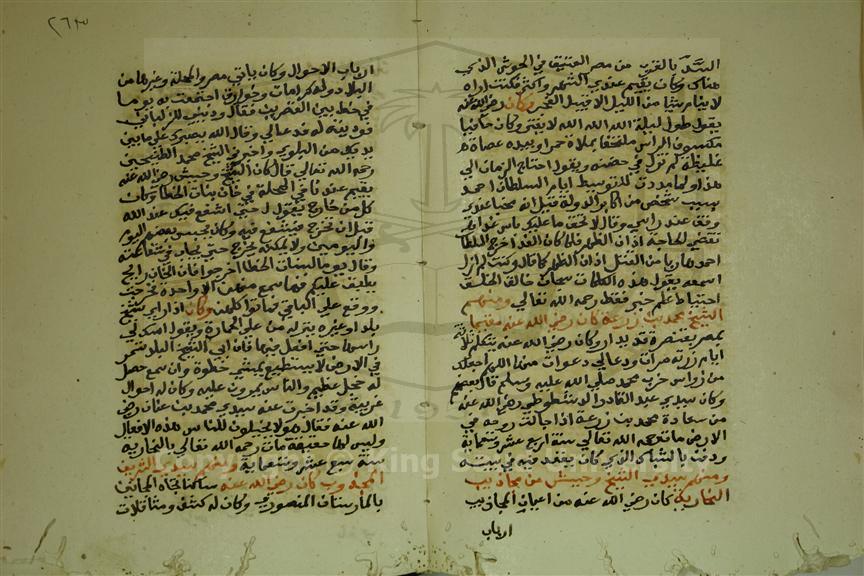 ٢٦٣
السد بالقرب من مصر العتيقة في الحوش الذي
هناك وكان يقيم عندي الشهر واكثر فكنت اراه
لا ينام شيئا من الليل الا قبيل الفجر وكان رضي الله عنه
يقول طول ليلة الله الله الله لا يفتر وكان حافيا
مكشوف الراس ملتفعا بملاة حمرا وبيده عصاة
غليظة لم تزل في حضنه ويقول احتاج الزمان الي
هذا ولما مددت للتوسيط ايام السلطان احمد
بسبب شخص من اكابر الدولة قيل انه مختبا عندي
وقف عند راسي وقال لا تخف ما عليك باس غدا
تقضي الحاجة اذان الظهر فلما كان الغد اخرج السلطان
احمد هاربا من القتل اذان الظهر كما قال وكنت لم ازل
اسمعه يقول هذه الكلمات سبحان خالق الخلق
احتياط علم خبر فقط رحمه الله تعالي ومنهم
الشيخ محمد بن زرعة كان رضي الله عنه مقيما
بمصر بقنطرة قديدار وكان رضي الله عنه يتكلم ثلاثة
ايام زرته مرات ودعالي دعوات منها اللهم اجعله
من رواس حزب محمد صلي الله عليه وسلم
وكان سيدي عبد القادر الدشطوطي رضي الله عنه
من سعادة محمد بن زرعة اذا جا لت زوجه في
الارض مات رحمه الله تعالي سنة اربع عشرة وتسعماية
ودفن بالشباك الذي كان يقعد فيه في بيته
ومنهم سيدي الشيخ وحيش من مجاذيب
النحارية كان رضي الله عنه من اعيان المجاذيب
ارباب
ارباب الاحوال وكان ياتي مصر والمحلة وغيرها من
البلاد وله كرامات وخوارق اجتمعت به يوما
في خط بين القصرين فقال وديني للزلباني
فوديته له فدعالي وقال الله يصبرك علي ما بين
يديك من البلوي واخبرني الشيخ محمد الطنيخي
رحمه الله تعالي قال كان الشيخ وحيش رضي الله عنه
يقيم عندنا في المحلة في خان بنات الخطا وكان
كل من خارج يقول له حتي اشفع فيك عند الله
قبل ان تخرج فيشفع فيه وكان يحبس بعضهم اليوم
واليومين ولا يمكنه يخرج حتي يجاب في شفاعته
وقال يوما لبنات الخطا اخرجوا فان الخان رايح
يطبق عليكم فما سمع منهن الا واحدة فخرجت
ووقع علي الباقي فماتوا كلهن وكان اذا راي شيخ
بلد او غيره ينزله من علي الحمارة ويقول امسك لي
راسها حتي افعل فيها فان ابي الشيخ البلد تسمر
في الارض لا يستطيع يمشي خطوة وان سمع حصل
له خجل عظيم والناس يمرون عليه وكان له احوال
غريبة وقد اخبرت عنه سيدي محمد بن عنان رضي
الله عنه فقال هولا يخيلون للناس هذه الافعال
وليس لها حقيقة مات رحمه الله تعالي بالنحارية
سنة سبع عشر وتسعماية ومنهم سيدي الشريف
المجذوب كان رضي الله عنه ساكنا تجاه المجانين
بالمارستان المنصوري وكان له كشف ومثاقلات